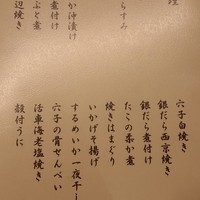 理
らすみ
か沖漬け
煮付け
ぶと煮
辺焼き
穴子白焼き
銀だら西京焼き
銀だら煮付け
たこの柔か煮
焼きはまぐり
いかげそ揚げ
するめいか一夜干し
穴子の骨せんべい
活車海老塩焼き
殻付うに